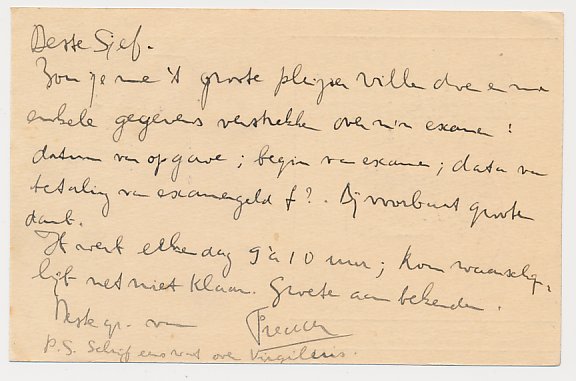 Beste Sjef.
Zou je me 't groote plezier willen doen en me
enkele gegevens verstrekken over m'n examen!
datum van opgave; begin van examen; datum van
betaling van examengeld f?. Bij voorbaat grooten
dank.
Ik werk elke dag 9 à 10 uur; kom waarschijn-
lijk net niet klaar. Groete aan bekenden.
van
P.S. Schrijf eens wat over Virgilius.